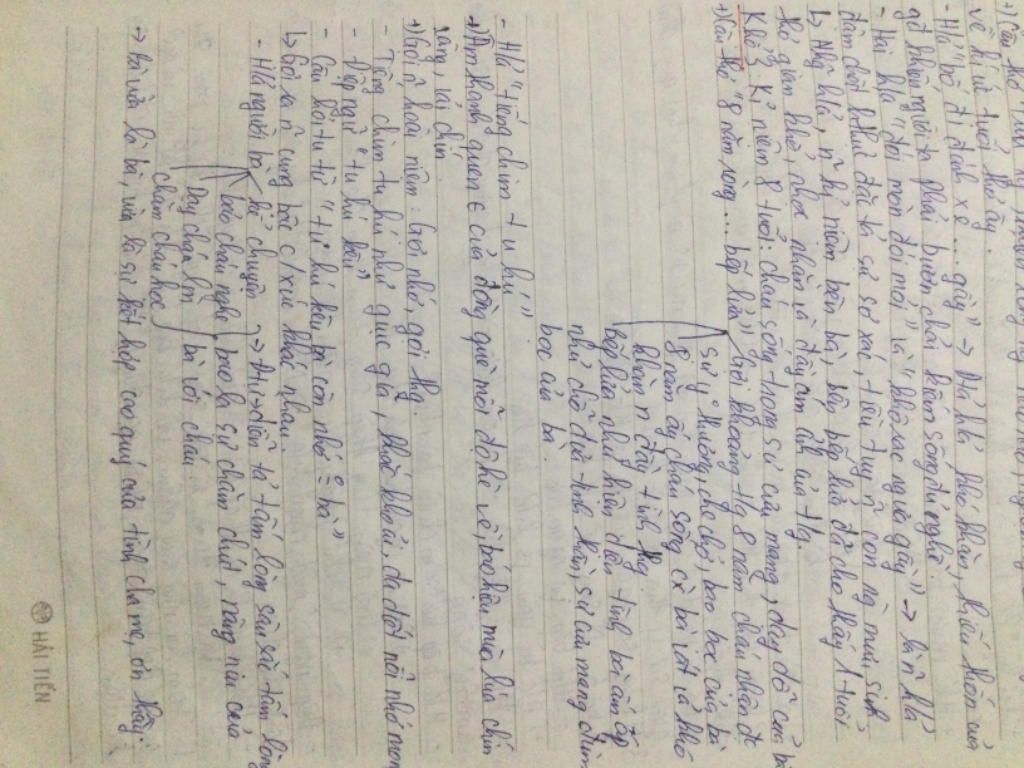 +) Câu thơ
về kí ức tuổi thơ ấy.
- H/ả "bố đi đánh xe ... gầy" → Đa khó khó khăn, thiếu thốn của
gđ khiến người ta phải bươn chải kiếm sống đủ nghề.
- Hai h/ả "đói mòn đói mỏi" và "khô rạc ngựa gầy" → h/ả
đậm chất hiện thực đã tả sự xơ xác, tiều tuỵ con ng mưu sinh
↳ Nhg h/ả, kỉ niệm bên bà, bên bếp lửa đã cho thấy 1 tuổi
thơ gian khổ, nhọc nhằn và đầy ám ảnh
Khổ 3: Kỉ niệm 8 tuổi: cháu sống trong sự cưu mang, dạy dỗ của bà
+) Câu thơ "8 năm ròng ... bếp lửa" gợi khoảng t/g 8 năm cháu nhận đc
sự yêu thương, che chở, bao bọc của bà
8 năm ấy cháu sống cù bà vất vả khó
khăn đầy tình
bếp lửa như hiện thân tình bà ấm áp
như chỗ dựa tinh thần, sự cưu mang đùm
bọc của bà.
- H/ả "tiếng chim tu hú"
→ Âm thanh quen của đồng quê mỗi độ hè về, báo hiệu mùa lúa chín
vàng, vải chín.
+) Gợi hoài niệm: Gợi nhớ, gợi
- Tiếng chim tu hú như giục giã, khắc khoải, da diết nỗi nhớ mong
- Điệp ngữ "tu hú kêu"
- Câu hỏi tu từ "tu hú kêu bà còn nhớ bà"
↳ Gợi ra cung bậc c/xúc khác nhau.
- H/ả người bà kể chuyện → diễn tả tấm lòng sâu sắc tấm lòng
bảo cháu nghe bao la sự chăm chút, nâng niu của
Dạy cháu làm bà với cháu.
chăm cháu học
→ bà vừa là bà, vừa là sự kết hợp cao quý của tình cha mẹ, ơn thầy.
HẢI TIẾN